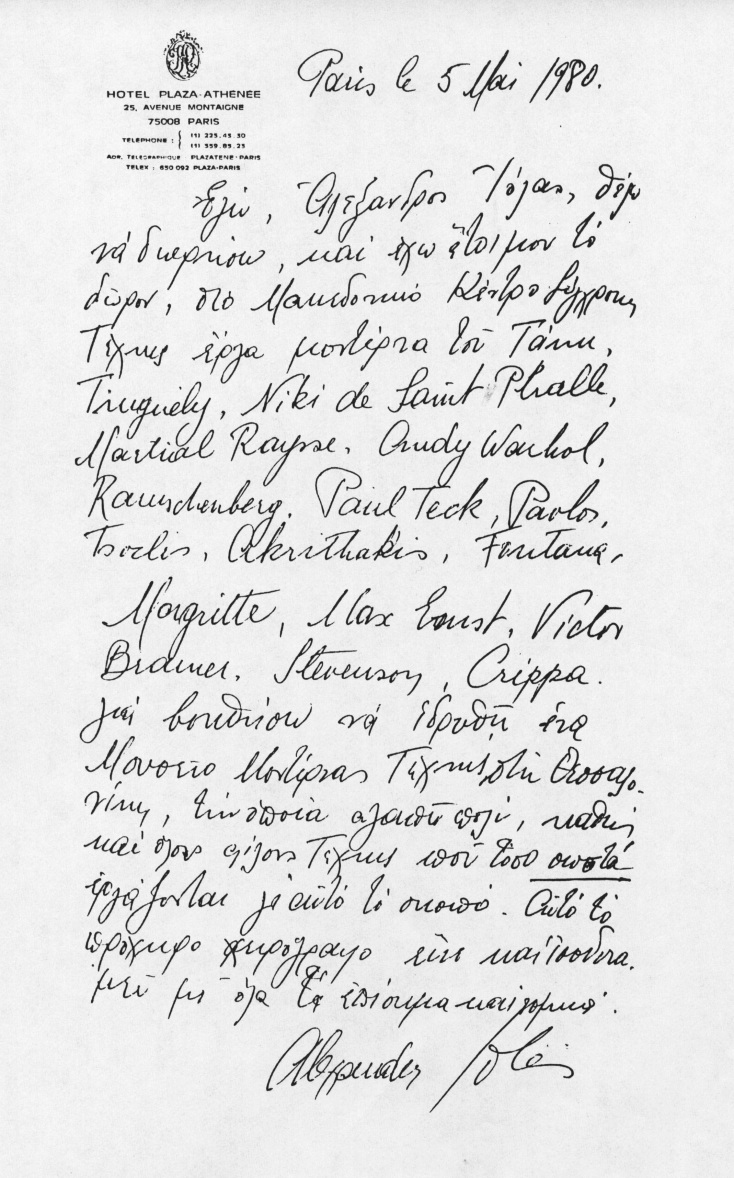 HOTEL PLAZA-ATHÉNÉE
25, AVENUE MONTAIGNE
75008 PARIS
TELEPHONE : (1) 225.45.30
(1) 359.85.25
ADR. TÉLÉGRAPHIQUE PLAZATENE-PARIS
TELEX : 650 092 PLAZA-PARIS
Paris le 5 Mai 1980.
Ἐγώ, Ἀλέξανδρος Ἰόλας, θέλω
νά δωρήσω, καί ἔχω ἕτοιμον τό
δῶρον, στό Μακεδονικό Κέντρο Σύγχρονης
Τέχνης ἔργα μοντέρνα τοῦ Τάκι,
Tinguely, Niki de Saint Phalle,
Martial Raysse. Andy Warhol,
Rauschenberg. Paul Teck, Pavlos,
Tsoclis, Akrithakis, Fontana,
Magritte, Max Ernst, Victor
Brauner. Stevenson, Crippa.
γιά βοηθήσω νά ἱδρυθῆ ἕνα
Μουσεῖο Μοντέρνας Τέχνης στή Θεσσαλο-
νίκη, τήν ὁποία ἀγαπῶ πολύ, καθώς
καί ὅλους φίλους Τέχνης πού τόσο σωστά
ἐργάζονται γι' αὐτό τό σκοπό. Αὐτό τό
πρόχειρο χειρόγραφο εἶνε καί ἰσοδυνα-
μεῖ μέ ὅλα τά ἐπίσημα καί νομικά.
Alexander Iolas